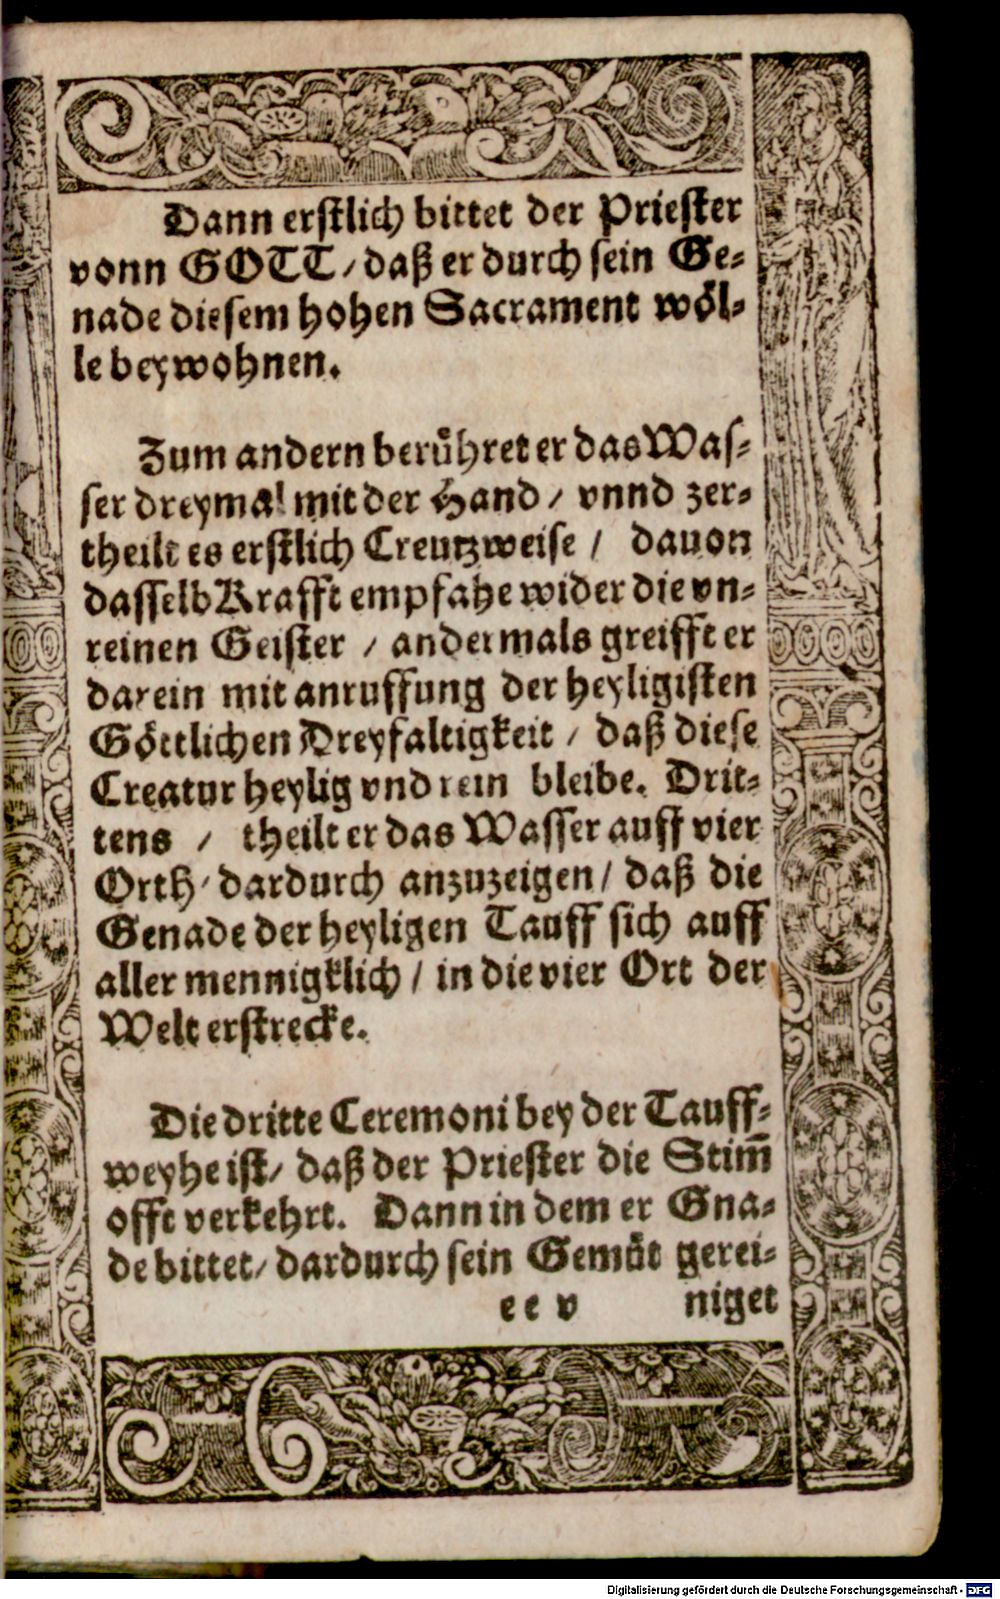 Dann erstlich bittet der Priester
vonn GOTT / daß er durch sein Ge-
nade diesem hohen Sacrament wöl-
le beywohnen.
Zum andern berůhret er das Was-
ser dreymal mit der Hand / vnnd zer-
theilt es erstlich Creutzweise / dauon
dasselb Krafft empfahe wider die vn-
reinen Geister / andermals greifft er
darein mit anruffung der heyligisten
Göttlichen Dreyfaltigkeit / daß diese
Creatur heylig vnd rein bleibe. Drit-
tens / theilt er das Wasser auff vier
Orth / dardurch anzuzeigen / daß die
Genade der heyligen Tauff sich auff
aller mennigklich / in die vier Ort der
Welt erstrecke.
Die dritte Ceremoni bey der Tauff-
weyhe ist / daß der Priester die Stim̄
offt verkehrt. Dann in dem er Gna-
de bittet / dardurch sein Gemůt gerei-
ee v niget
Digitalisierung gefördert durch die Deutsche Forschungsgemeinschaft - DFG